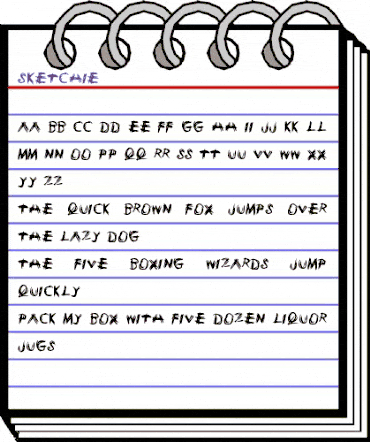 SKETCHIE
AA BB CC DD EE FF GG HH II JJ KK LL
MM NN OO PP QQ RR SS TT UU VV WW XX
YY ZZ
THE QUICK BROWN FOX JUMPS OVER
THE LAZY DOG
THE FIVE BOXING WIZARDS JUMP
QUICKLY
PACK MY BOX WITH FIVE DOZEN LIQUOR
JUGS